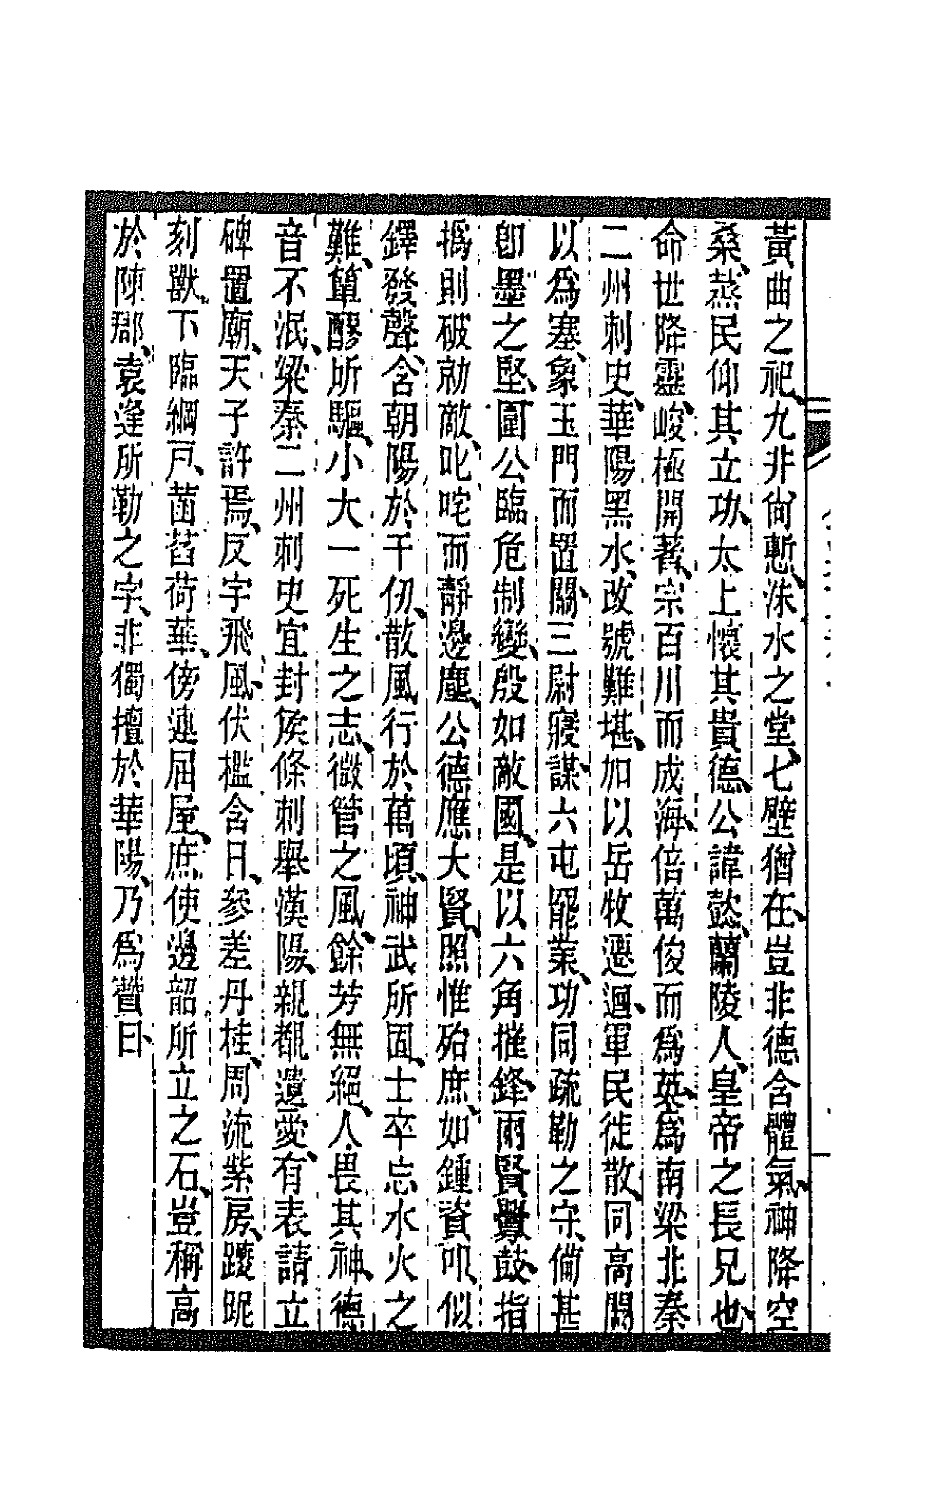 黃曲之祀、九井尙慙、洙水之堂、七壁猶在、豈非德含體氣、神降空
桑、蒸民仰其立功、太上懷其貴德、公諱懿、蘭陵人、皇帝之長兄也、
命世降靈、峻極開著、宗百川而成海、倍萬俊而爲英、爲南梁北秦
二州刺史、華陽黑水、改號難堪、加以岳牧遷迴、軍民徙散、同高闕
以爲塞、象玉門而置關、三尉寢謀、六屯罷業、功同疏勒之守、倘甚
卽墨之堅、圍公臨危制變、殷如敵國、是以六角摧鋒、兩賢釁鼓、指
撝則破勍敵、叱咤而靜邊塵、公德應大賢、照惟殆庶、如鍾資叩、似
鐸發聲、含朝陽於千仞、散風行於萬頃、神武所固、士卒忘水火之
難、簞醪所驅、小大一死生之志、微管之風、餘芳無絕、人畏其神、德
音不泯、梁秦二州刺史宜封侯條刺舉漢陽、親覩遺愛、有表請立
碑置廟、天子許焉、反宇飛風、伏檻含日、參差丹桂、周流紫房、躨跜
刻獸、下臨綱戸、菡萏荷華、傍連屈屋、庶使邊韶所立之石、豈稱高
於陳郡、袁逢所勒之字、非獨擅於華陽、乃爲贊曰、